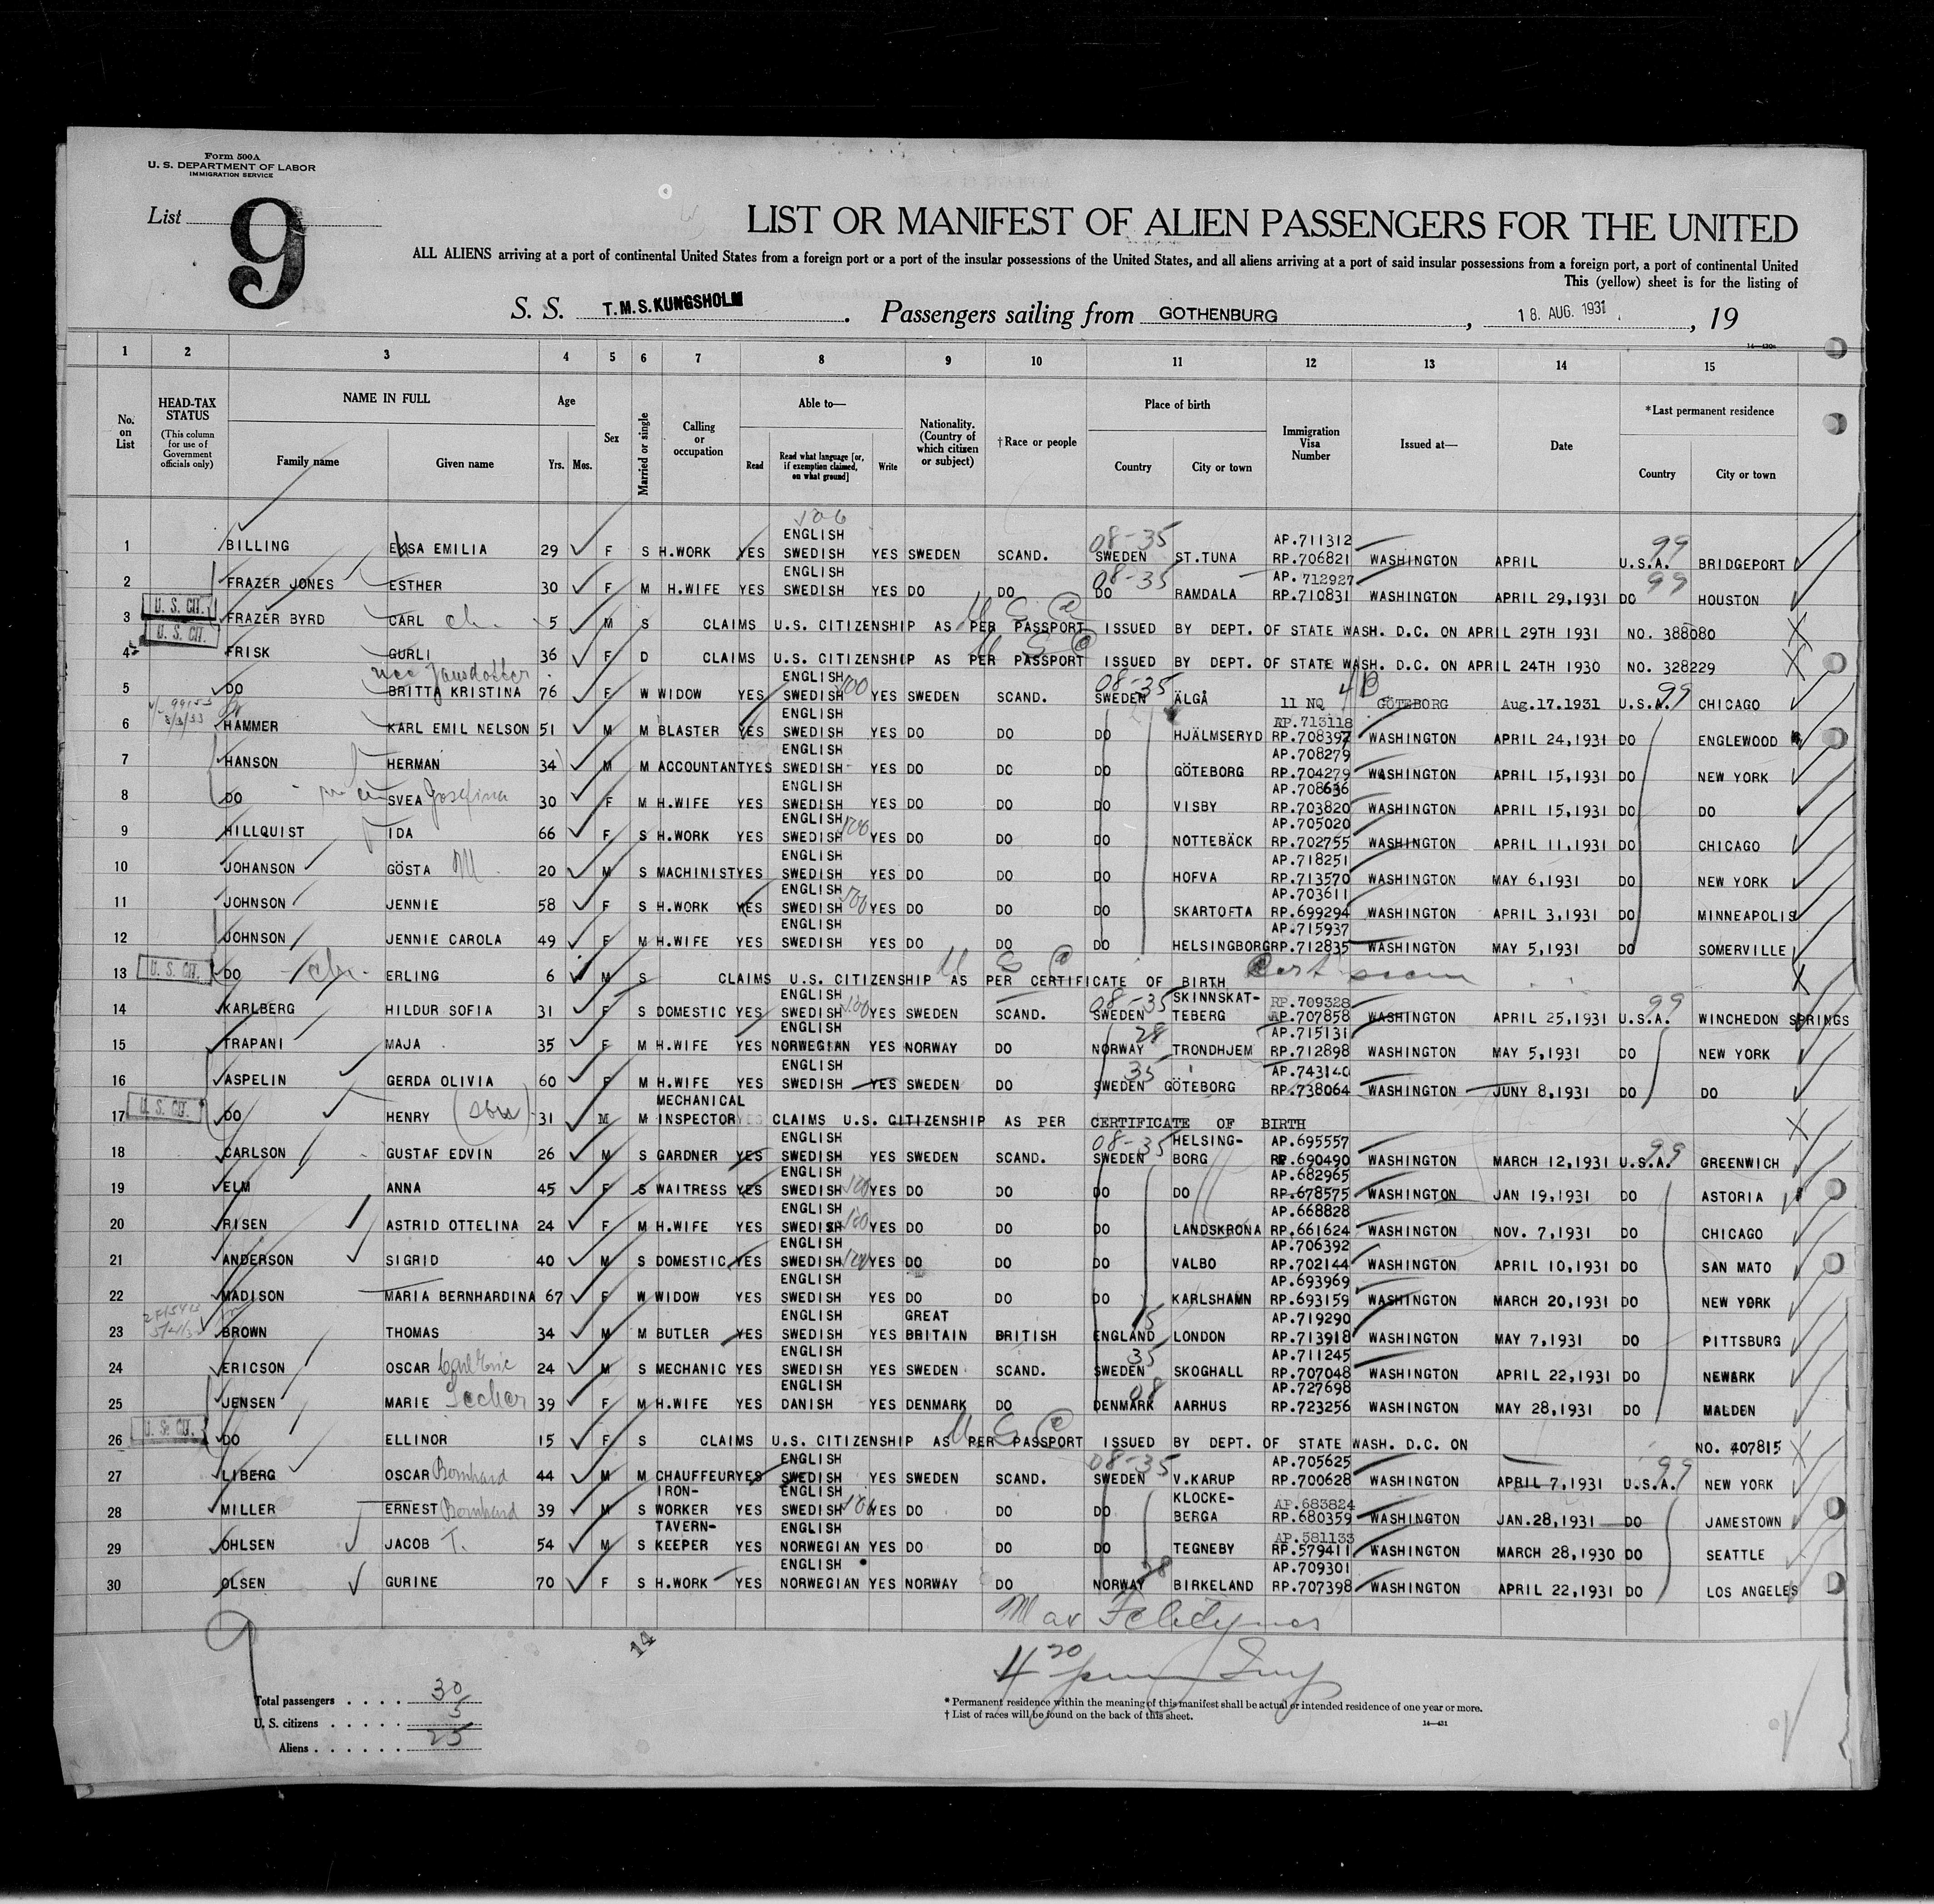 Form 500A
U. S. DEPARTMENT OF LABOR
IMMIGRATION SERVICE
List 9
LIST OR MANIFEST OF ALIEN PASSENGERS FOR THE UNITED
ALL ALIENS arriving at a port of continental United States from a foreign port or a port of the insular possessions of the United States, and all aliens arriving at a port of said insular possessions from a foreign port, a port of continental United
This (yellow) sheet is for the listing of
S. S. T.M.S. KUNGSHOLM . Passengers sailing from GOTHENBURG , 18. AUG. 1931 , 19
14—430a
1 2 3 4 5 6 7 8 9 10 11 12 13 14 15
No. on List
HEAD-TAX STATUS (This column for use of Government officials only)
NAME IN FULL Family name Given name
Age Yrs. Mos.
Sex
Married or single
Calling or occupation
Able to— Read Read what language [or, if exemption claimed, on what ground] Write
Nationality. (Country of which citizen or subject)
†Race or people
Place of birth Country City or town
Immigration Visa Number
Issued at—
Date
*Last permanent residence Country City or town
1 BILLING ELSA EMILIA 29 F S H.WORK YES ENGLISH SWEDISH YES SWEDEN SCAND. 08-35 SWEDEN ST.TUNA AP.711312 RP.706821 WASHINGTON APRIL 99 U.S.A. BRIDGEPORT
2 FRAZER JONES ESTHER 30 F M H.WIFE YES ENGLISH SWEDISH YES DO DO 08-35 DO RAMDALA AP.712927 RP.710831 WASHINGTON APRIL 29,1931 DO 99 HOUSTON
3 U. S. CIT. FRAZER BYRD CARL ch. 5 M S CLAIMS U.S. CITIZENSHIP AS PER PASSPORT ISSUED BY DEPT. OF STATE WASH. D.C. ON APRIL 29TH 1931 NO. 388080
4 U. S. CIT. FRISK GURLI 36 F D CLAIMS U.S. CITIZENSHIP AS PER PASSPORT ISSUED BY DEPT. OF STATE WASH. D.C. ON APRIL 24TH 1930 NO. 328229
5 DO BRITTA KRISTINA 76 F W WIDOW YES ENGLISH SWEDISH YES SWEDEN SCAND. 08-35 SWEDEN ÄLGÅ 11 NQ GÖTEBORG Aug.17.1931 U.S.A. 99 CHICAGO
6 HAMMER KARL EMIL NELSON 51 M M BLASTER YES ENGLISH SWEDISH YES DO DO DO HJÄLMSERYD AP.713118 RP.708397 WASHINGTON APRIL 24,1931 DO ENGLEWOOD
7 HANSON HERMAN 34 M M ACCOUNTANT YES ENGLISH SWEDISH YES DO DO DO GÖTEBORG AP.708279 RP.704279 WASHINGTON APRIL 15,1931 DO NEW YORK
8 DO SVEA Josefina 30 F M H.WIFE YES ENGLISH SWEDISH YES DO DO DO VISBY AP.708636 RP.703820 WASHINGTON APRIL 15,1931 DO DO
9 HILLQUIST IDA 66 F S H.WORK YES ENGLISH SWEDISH YES DO DO DO NOTTEBÄCK AP.705020 RP.702755 WASHINGTON APRIL 11,1931 DO CHICAGO
10 JOHANSON GÖSTA M 20 M S MACHINIST YES ENGLISH SWEDISH YES DO DO DO HOFVA AP.718251 RP.713570 WASHINGTON MAY 6,1931 DO NEW YORK
11 JOHNSON JENNIE 58 F S H.WORK YES ENGLISH SWEDISH YES DO DO DO SKARTOFTA AP.703611 RP.699294 WASHINGTON APRIL 3,1931 DO MINNEAPOLIS
12 JOHNSON JENNIE CAROLA 49 F M H.WIFE YES ENGLISH SWEDISH YES DO DO DO HELSINGBORG AP.715937 RP.712835 WASHINGTON MAY 5,1931 DO SOMERVILLE
13 U. S. CIT. DO ERLING 6 M S CLAIMS U.S. CITIZENSHIP AS PER CERTIFICATE OF BIRTH Cert seen
14 KARLBERG HILDUR SOFIA 31 F S DOMESTIC YES ENGLISH SWEDISH YES SWEDEN SCAND. 08-35 SWEDEN SKINNSKAT- TEBERG RP.709328 AP.707858 WASHINGTON APRIL 25,1931 99 U.S.A. WINCHEDON SPRINGS
15 TRAPANI MAJA 35 F M H.WIFE YES ENGLISH NORWEGIAN YES NORWAY DO 28 NORWAY TRONDHJEM AP.715131 RP.712898 WASHINGTON MAY 5,1931 DO NEW YORK
16 ASPELIN GERDA OLIVIA 60 F M H.WIFE YES ENGLISH SWEDISH YES SWEDEN DO 35 SWEDEN GÖTEBORG AP.743140 RP.738064 WASHINGTON JUNY 8,1931 DO DO
17 U. S. CIT. DO HENRY 31 M M MECHANICAL INSPECTOR YES CLAIMS U.S. CITIZENSHIP AS PER CERTIFICATE OF BIRTH
18 CARLSON GUSTAF EDVIN 26 M S GARDNER YES ENGLISH SWEDISH YES SWEDEN SCAND. 08-35 SWEDEN HELSING- BORG AP.695557 RP.690490 WASHINGTON MARCH 12,1931 U.S.A. 99 GREENWICH
19 ELM ANNA 45 F S WAITRESS YES ENGLISH SWEDISH YES DO DO DO DO AP.682965 RP.678575 WASHINGTON JAN 19,1931 DO ASTORIA
20 RISEN ASTRID OTTELINA 24 F M H.WIFE YES ENGLISH SWEDISH YES DO DO DO LANDSKRONA AP.668828 RP.661624 WASHINGTON NOV. 7,1931 DO CHICAGO
21 ANDERSON SIGRID 40 M S DOMESTIC YES ENGLISH SWEDISH YES DO DO DO VALBO AP.706392 RP.702144 WASHINGTON APRIL 10,1931 DO SAN MATO
22 MADISON MARIA BERNHARDINA 67 F W WIDOW YES ENGLISH SWEDISH YES DO DO DO KARLSHAMN AP.693969 RP.693159 WASHINGTON MARCH 20,1931 DO NEW YORK
23 BROWN THOMAS 34 M M BUTLER YES ENGLISH SWEDISH YES GREAT BRITAIN BRITISH 15 ENGLAND LONDON AP.719290 RP.713918 WASHINGTON MAY 7,1931 DO PITTSBURG
24 ERICSON OSCAR Carl Eric 24 M S MECHANIC YES ENGLISH SWEDISH YES SWEDEN SCAND. 35 SWEDEN SKOGHALL AP.711245 RP.707048 WASHINGTON APRIL 22,1931 DO NEWARK
25 JENSEN MARIE 39 F M H.WIFE YES ENGLISH DANISH YES DENMARK DO 08 DENMARK AARHUS AP.727698 RP.723256 WASHINGTON MAY 28,1931 DO MALDEN
26 DO ELLINOR 15 F S CLAIMS U.S. CITIZENSHIP AS PER PASSPORT ISSUED BY DEPT. OF STATE WASH. D.C. ON NO. 407815
27 LIBERG OSCAR Bernhard 44 M M CHAUFFEUR YES ENGLISH SWEDISH YES SWEDEN SCAND. 08-35 SWEDEN V.KARUP AP.705625 RP.700628 WASHINGTON APRIL 7,1931 U.S.A. 99 NEW YORK
28 MILLER ERNEST Bernhard 39 M S IRON- WORKER YES ENGLISH SWEDISH YES DO DO DO KLOCKE- BERGA AP.683824 RP.680359 WASHINGTON JAN.28,1931 DO JAMESTOWN
29 OHLSEN JACOB T. 54 M S TAVERN- KEEPER YES ENGLISH NORWEGIAN YES DO DO DO TEGNEBY AP.581133 RP.579411 WASHINGTON MARCH 28,1930 DO SEATTLE
30 OLSEN GURINE 70 F S H.WORK YES ENGLISH NORWEGIAN YES NORWAY DO 28 NORWAY BIRKELAND AP.709301 RP.707398 WASHINGTON APRIL 22,1931 DO LOS ANGELES
14
Total passengers . . . . 30
U. S. citizens . . . . . 5
Aliens . . . . . . 25
* Permanent residence within the meaning of this manifest shall be actual or intended residence of one year or more.
† List of races will be found on the back of this sheet.
14—431